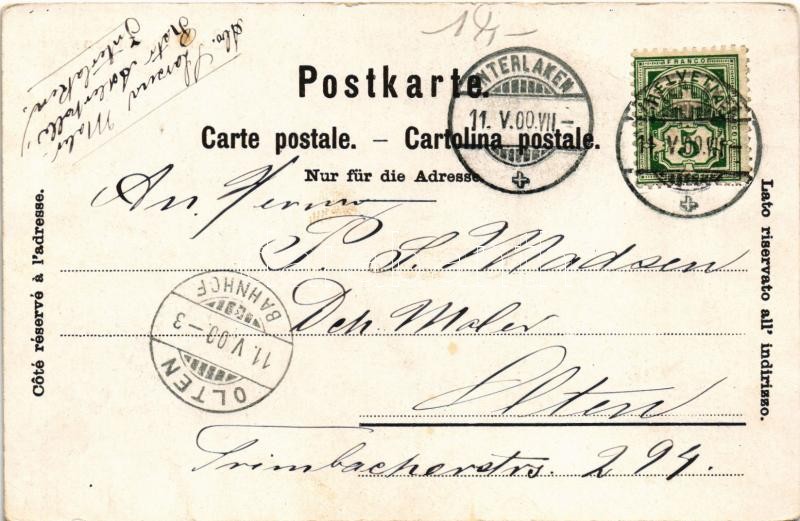 Abs.
Maler
Interlaken.
Postkarte.
Carte postale. – Cartolina postale.
Nur für die Adresse.
INTERLAKEN
11. V.00.VII–
FRANCO
HELVETIA
5
Côté réservé à l'adresse.
Lato riservato all' indirizzo.
An. Herrn
P. S. Madsen
Dek. Maler
Olten
Trimbacherstrs. 294.
OLTEN
11. V.00.–3
BAHNHOF